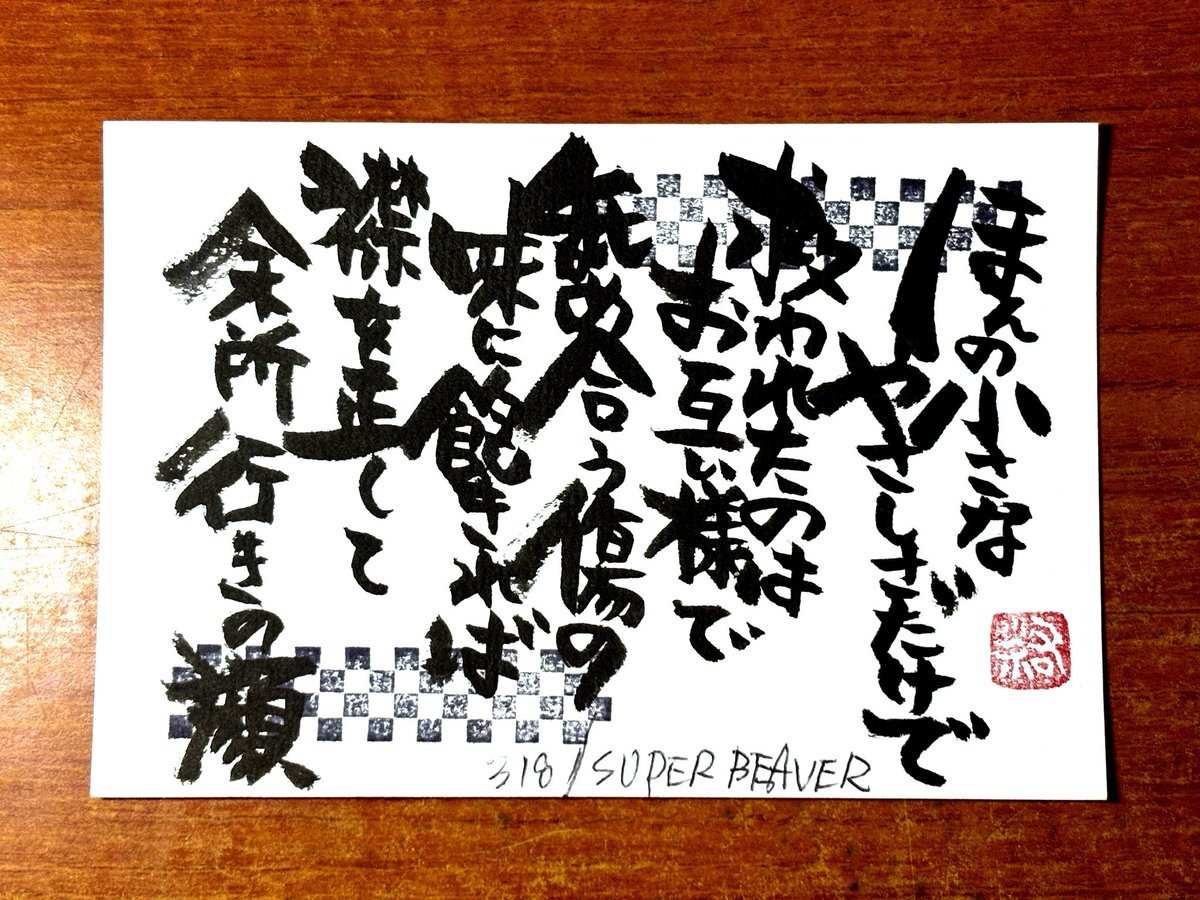 ほんの小さな
やさしさだけで
救われたのは
お互い様で
舐め合う傷の
味に餓えれば
襟を正して
余所行きの顔
318/SUPER BEAVER